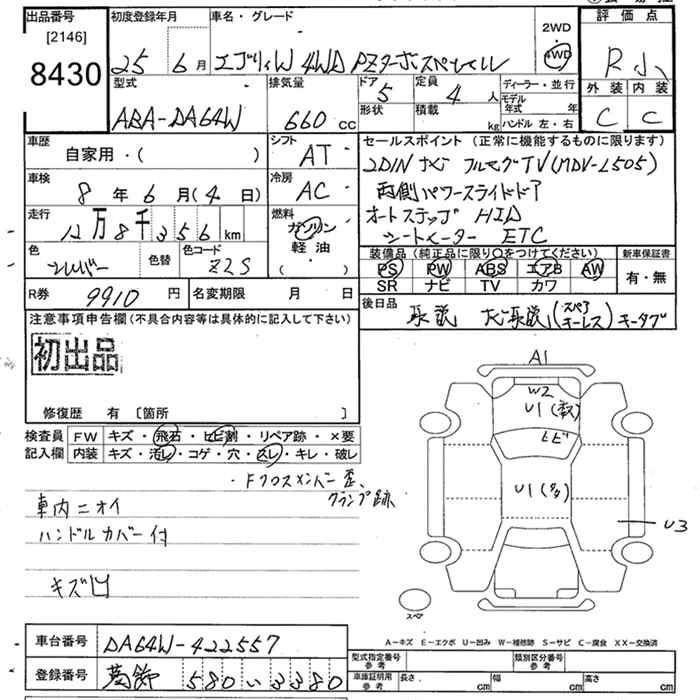 出品番号
[2146]
8430
初度登録年月
25年 6月
車名・グレード
エブリィW 4WD PZターボスペシャル
2WD
4WD
評価点
R小
外装 内装
C C
型式
ABA-DA64W
排気量
660 cc
ドア
5
定員
4 人
形状
積載
kg
ディーラー・並行
モデル年式 年
ハンドル 左・右
車歴
自家用・( )
シフト
AT
車検
8年 6月( 4日)
冷房
AC
走行
12万8千356 km
燃料
ガソリン
軽油
( )
色
シルバー
色替
色コード
Z2S
R券
9910 円
名変期限 月 日
セールスポイント (正常に機能するものに限ります)
2DINナビ フルセグTV(MDV-L505)
両側パワースライドドア
オートステップ HID
シートヒーター ETC
装備品(純正品に限り○をつけてください)
PS PW ABS エアB AW
SR ナビ TV カワ
新車保証書
有・無
後日品
取説 ナビ取説(スペアキーレス)キータグ
注意事項申告欄(不具合内容等は具体的に記入して下さい)
初出品
修復歴 有 〔箇所 〕
検査員記入欄
FW キズ・飛石・ヒビ割・リペア跡・×要
内装 キズ・汚レ・コゲ・穴・スレ・キレ・破レ
・Fクロスメンバー歪、
クランプ跡
車内ニオイ
ハンドルカバー付
キズ凹
A1
W2
U1(
ヒビ
U1(多)
U3
スペア
A－キズ E－エクボ U－凹み W－補修跡 S－サビ C－腐食 XX－交換済
車台番号
DA64W-422557
登録番号
580 い 3380
型式指定番号
参考
類別区分番号
参考
車庫証明用
参考
長さ cm
幅 cm
高さ cm